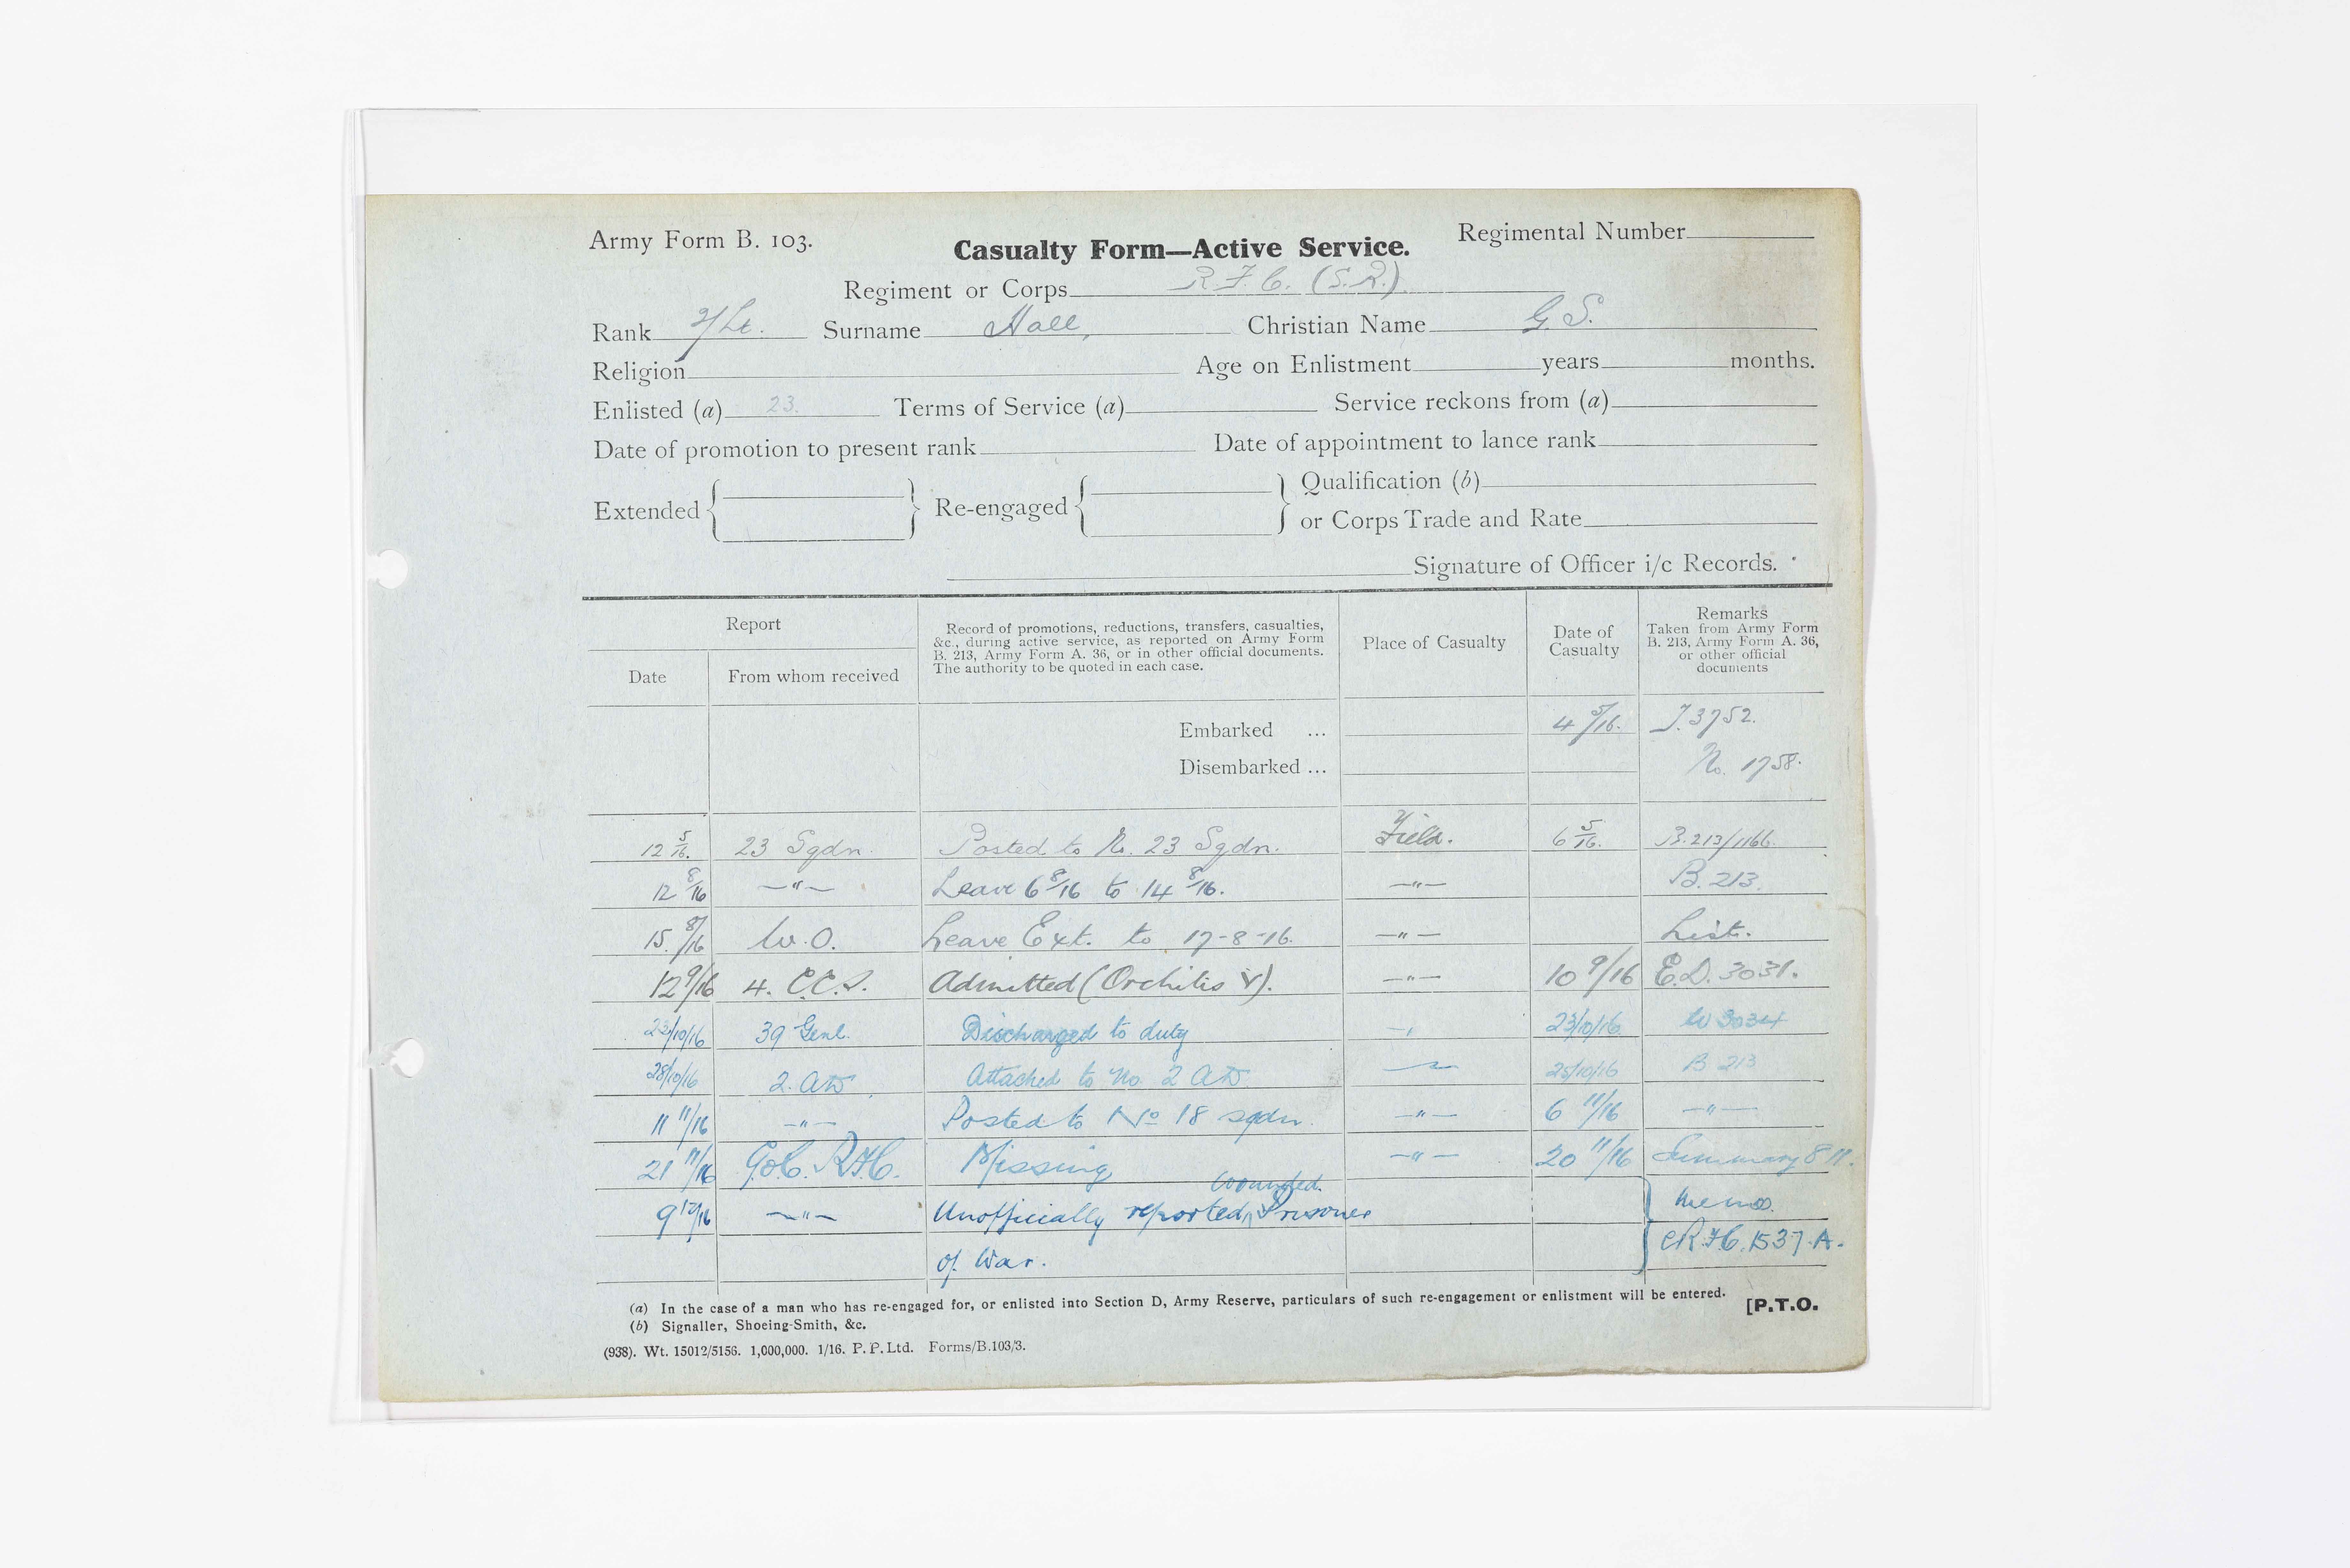 Army Form B. 103.
Casualty Form—Active Service.
Regimental Number
Regiment or Corps R.F.C. (S.R.)
Rank 2/Lt. Surname Hall, Christian Name G.S.
Religion Age on Enlistment years months.
Enlisted (a) 23. Terms of Service (a) Service reckons from (a)
Date of promotion to present rank Date of appointment to lance rank
Extended Re-engaged Qualification (b)
or Corps Trade and Rate
Signature of Officer i/c Records.
Report
Date
From whom received
Record of promotions, reductions, transfers, casualties,
&c., during active service, as reported on Army Form
B. 213, Army Form A. 36, or in other official documents.
The authority to be quoted in each case.
Place of Casualty
Date of
Casualty
Remarks
Taken from Army Form
B. 213, Army Form A. 36,
or other official
documents
Embarked ... 4 5/16. J.3752.
Disembarked ... No. 1758.
12 5/16. 23 Sqdn. Posted to No. 23 Sqdn. Field. 6 5/16. B.213/1166.
12 8/16 —"— Leave 6 8/16 to 14 8/16. —"— B.213.
15. 8/16 W.O. Leave Ext. to 17-8-16. —"— List.
12 9/16 4. C.C.S. Admitted (Orchitis V). —"— 10 9/16 E.D. 3031.
23/10/16 39 Genl. Discharged to duty —"— 23/10/16 W 3034
28/10/16 2. AD Attached to No. 2 AD. —"— 25/10/16 B 213
11 11/16 —"— Posted to No 18 sqdn. —"— 6 11/16 —"—
21 11/16 G.O.C. R.F.C. Missing —"— 20 11/16 Summary 8 11.
wounded.
9 12/16 —"— Unofficially reported Prisoner Memo.
of War. CR.F.C. 1537.A.
(a) In the case of a man who has re-engaged for, or enlisted into Section D, Army Reserve, particulars of such re-engagement or enlistment will be entered.
[P.T.O.
(b) Signaller, Shoeing-Smith, &c.
(938). Wt. 15012/5156. 1,000,000. 1/16. P.P.Ltd. Forms/B.103/3.